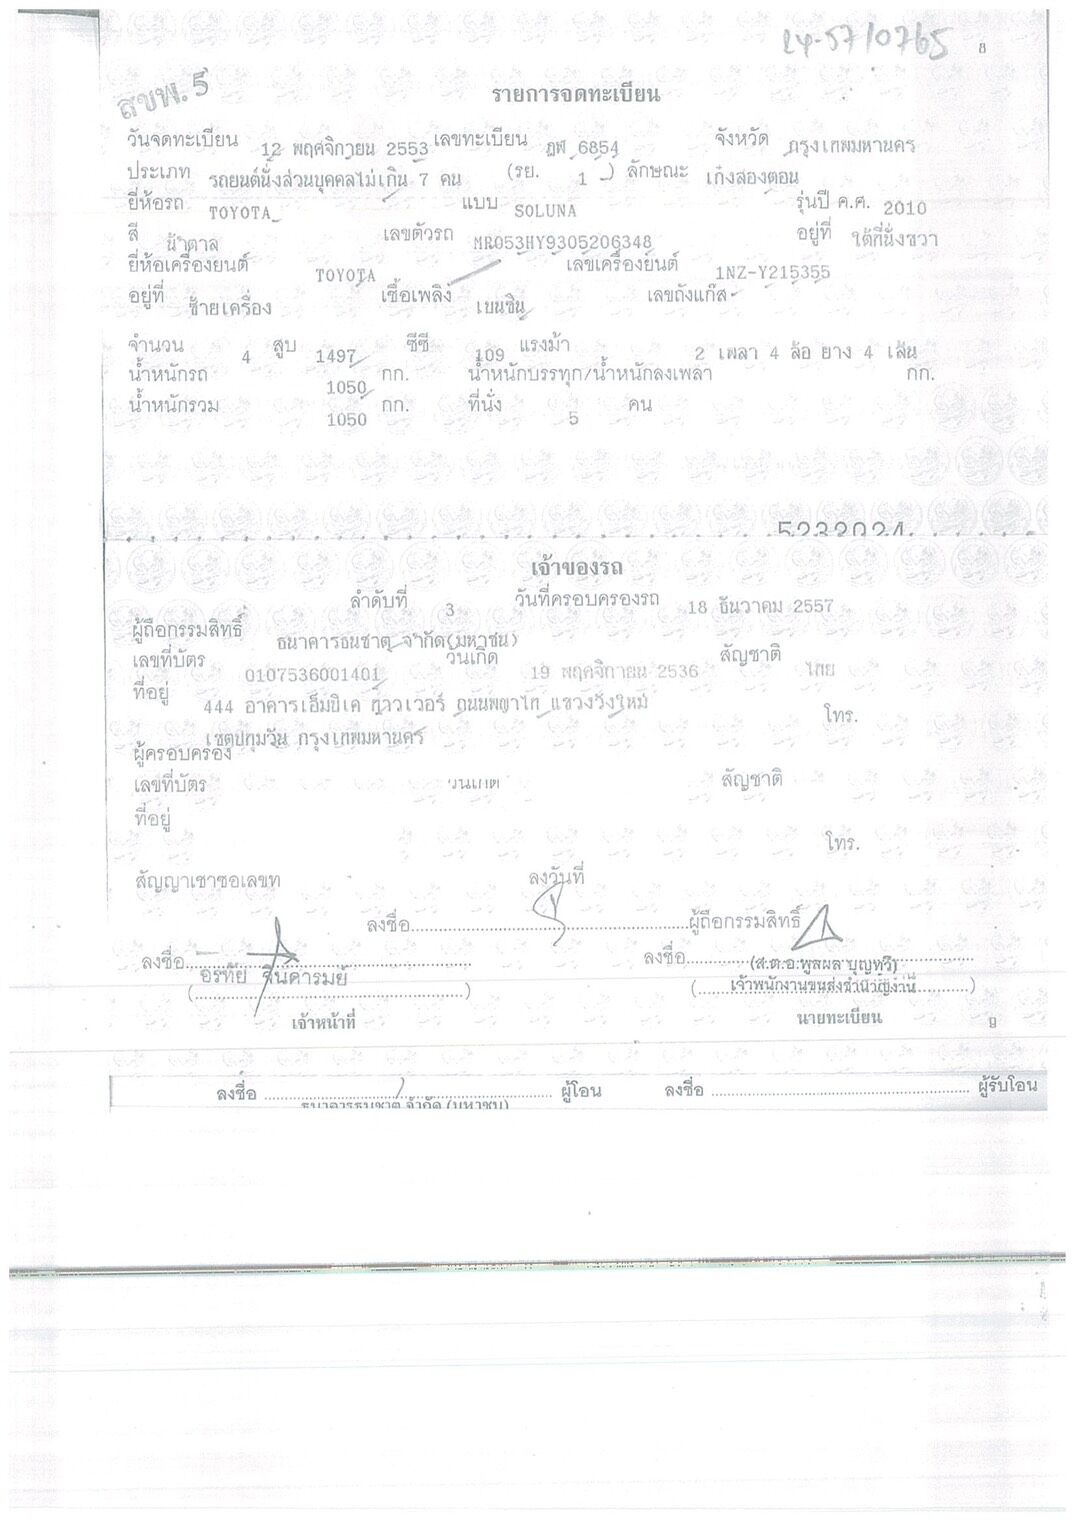 24-57/0765
8
สขพ. 5
รายการจดทะเบียน
วันจดทะเบียน 12 พฤศจิกายน 2553 เลขทะเบียน ฎฬ 6854 จังหวัด กรุงเทพมหานคร
ประเภท รถยนต์นั่งส่วนบุคคลไม่เกิน 7 คน (รย. 1 ) ลักษณะ เก๋งสองตอน
ยี่ห้อรถ TOYOTA แบบ SOLUNA รุ่นปี ค.ศ. 2010
สี น้ำตาล เลขตัวรถ MR053HY9305206348 อยู่ที่ ใต้ที่นั่งขวา
ยี่ห้อเครื่องยนต์ TOYOTA เลขเครื่องยนต์ 1NZ-Y215355
อยู่ที่ ซ้ายเครื่อง เชื้อเพลิง เบนซิน เลขถังแก๊ส -
จำนวน 4 สูบ 1497 ซีซี 109 แรงม้า 2 เพลา 4 ล้อ ยาง 4 เส้น
น้ำหนักรถ 1050 กก. น้ำหนักบรรทุก/น้ำหนักลงเพลา กก.
น้ำหนักรวม 1050 กก. ที่นั่ง 5 คน
5232024
เจ้าของรถ
ลำดับที่ 3 วันที่ครอบครองรถ 18 ธันวาคม 2557
ผู้ถือกรรมสิทธิ์ ธนาคารธนชาต จำกัด(มหาชน)
เลขที่บัตร 0107536001401 วันเกิด 19 พฤศจิกายน 2536 สัญชาติ ไทย
ที่อยู่ 444 อาคารเอ็มบีเค ทาวเวอร์ ถนนพญาไท แขวงวังใหม่
โทร.
เขตปทุมวัน กรุงเทพมหานคร
ผู้ครอบครอง
เลขที่บัตร วันเกิด สัญชาติ
ที่อยู่
โทร.
สัญญาเช่าซื้อเลขที่ ลงวันที่
ลงชื่อ ผู้ถือกรรมสิทธิ์
ลงชื่อ ลงชื่อ
อรทัย จินดารมย์ (ส.ต.อ.พูลผล บุญทวี)
( ) (เจ้าพนักงานขนส่งชำนาญงาน)
เจ้าหน้าที่ นายทะเบียน
9
ลงชื่อ ผู้โอน ลงชื่อ ผู้รับโอน
ธนาคารธนชาต จำกัด (มหาชน)